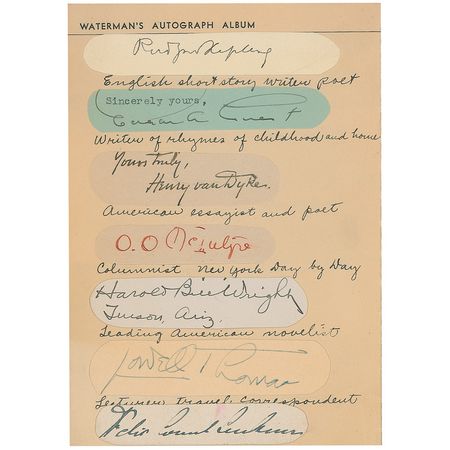 WATERMAN'S AUTOGRAPH ALBUM
Rudyard Kipling
English short story writer poet
Sincerely yours,
Edgar A. Guest
Writer of rhymes of childhood and home
Yours truly,
Henry van Dyke.
American essayist and poet
O. O McIntyre
Columnist New York Day by Day
Harold Bell Wright
Tucson, Ariz.
Leading American novelist
Lowell Thomas
Lecturer, Travel, Correspondent
Felix